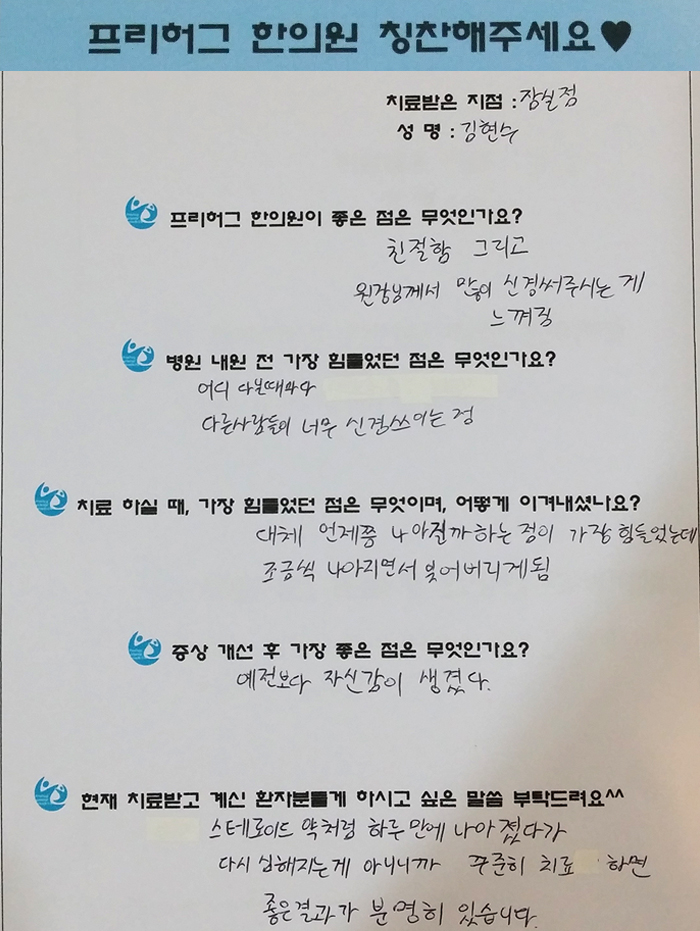 프리허그 한의원 칭찬해주세요♥
치료받은 지점 : 잠실점
성 명 : 김현수
프리허그 한의원이 좋은 점은 무엇인가요?
친절함 그리고
원장님께서 많이 신경써주시는 게
느껴짐
병원 내원 전 가장 힘들었던 점은 무엇인가요?
어디 다닐때마다
다른사람들이 너무 신경쓰이는 점
치료 하실 때, 가장 힘들었던 점은 무엇이며, 어떻게 이겨내셨나요?
대체 언제쯤 나아질까하는 점이 가장 힘들었는데
조금씩 나아지면서 잊어버리게됨
증상 개선 후 가장 좋은 점은 무엇인가요?
예전보다 자신감이 생겼다.
현재 치료받고 계신 환자분들게 하시고 싶은 말씀 부탁드려요^^
스테로이드 약처럼 하루만에 나아졌다가
다시 심해지는게 아니니까 꾸준히 치료 하면
좋은결과가 분명히 있습니다.